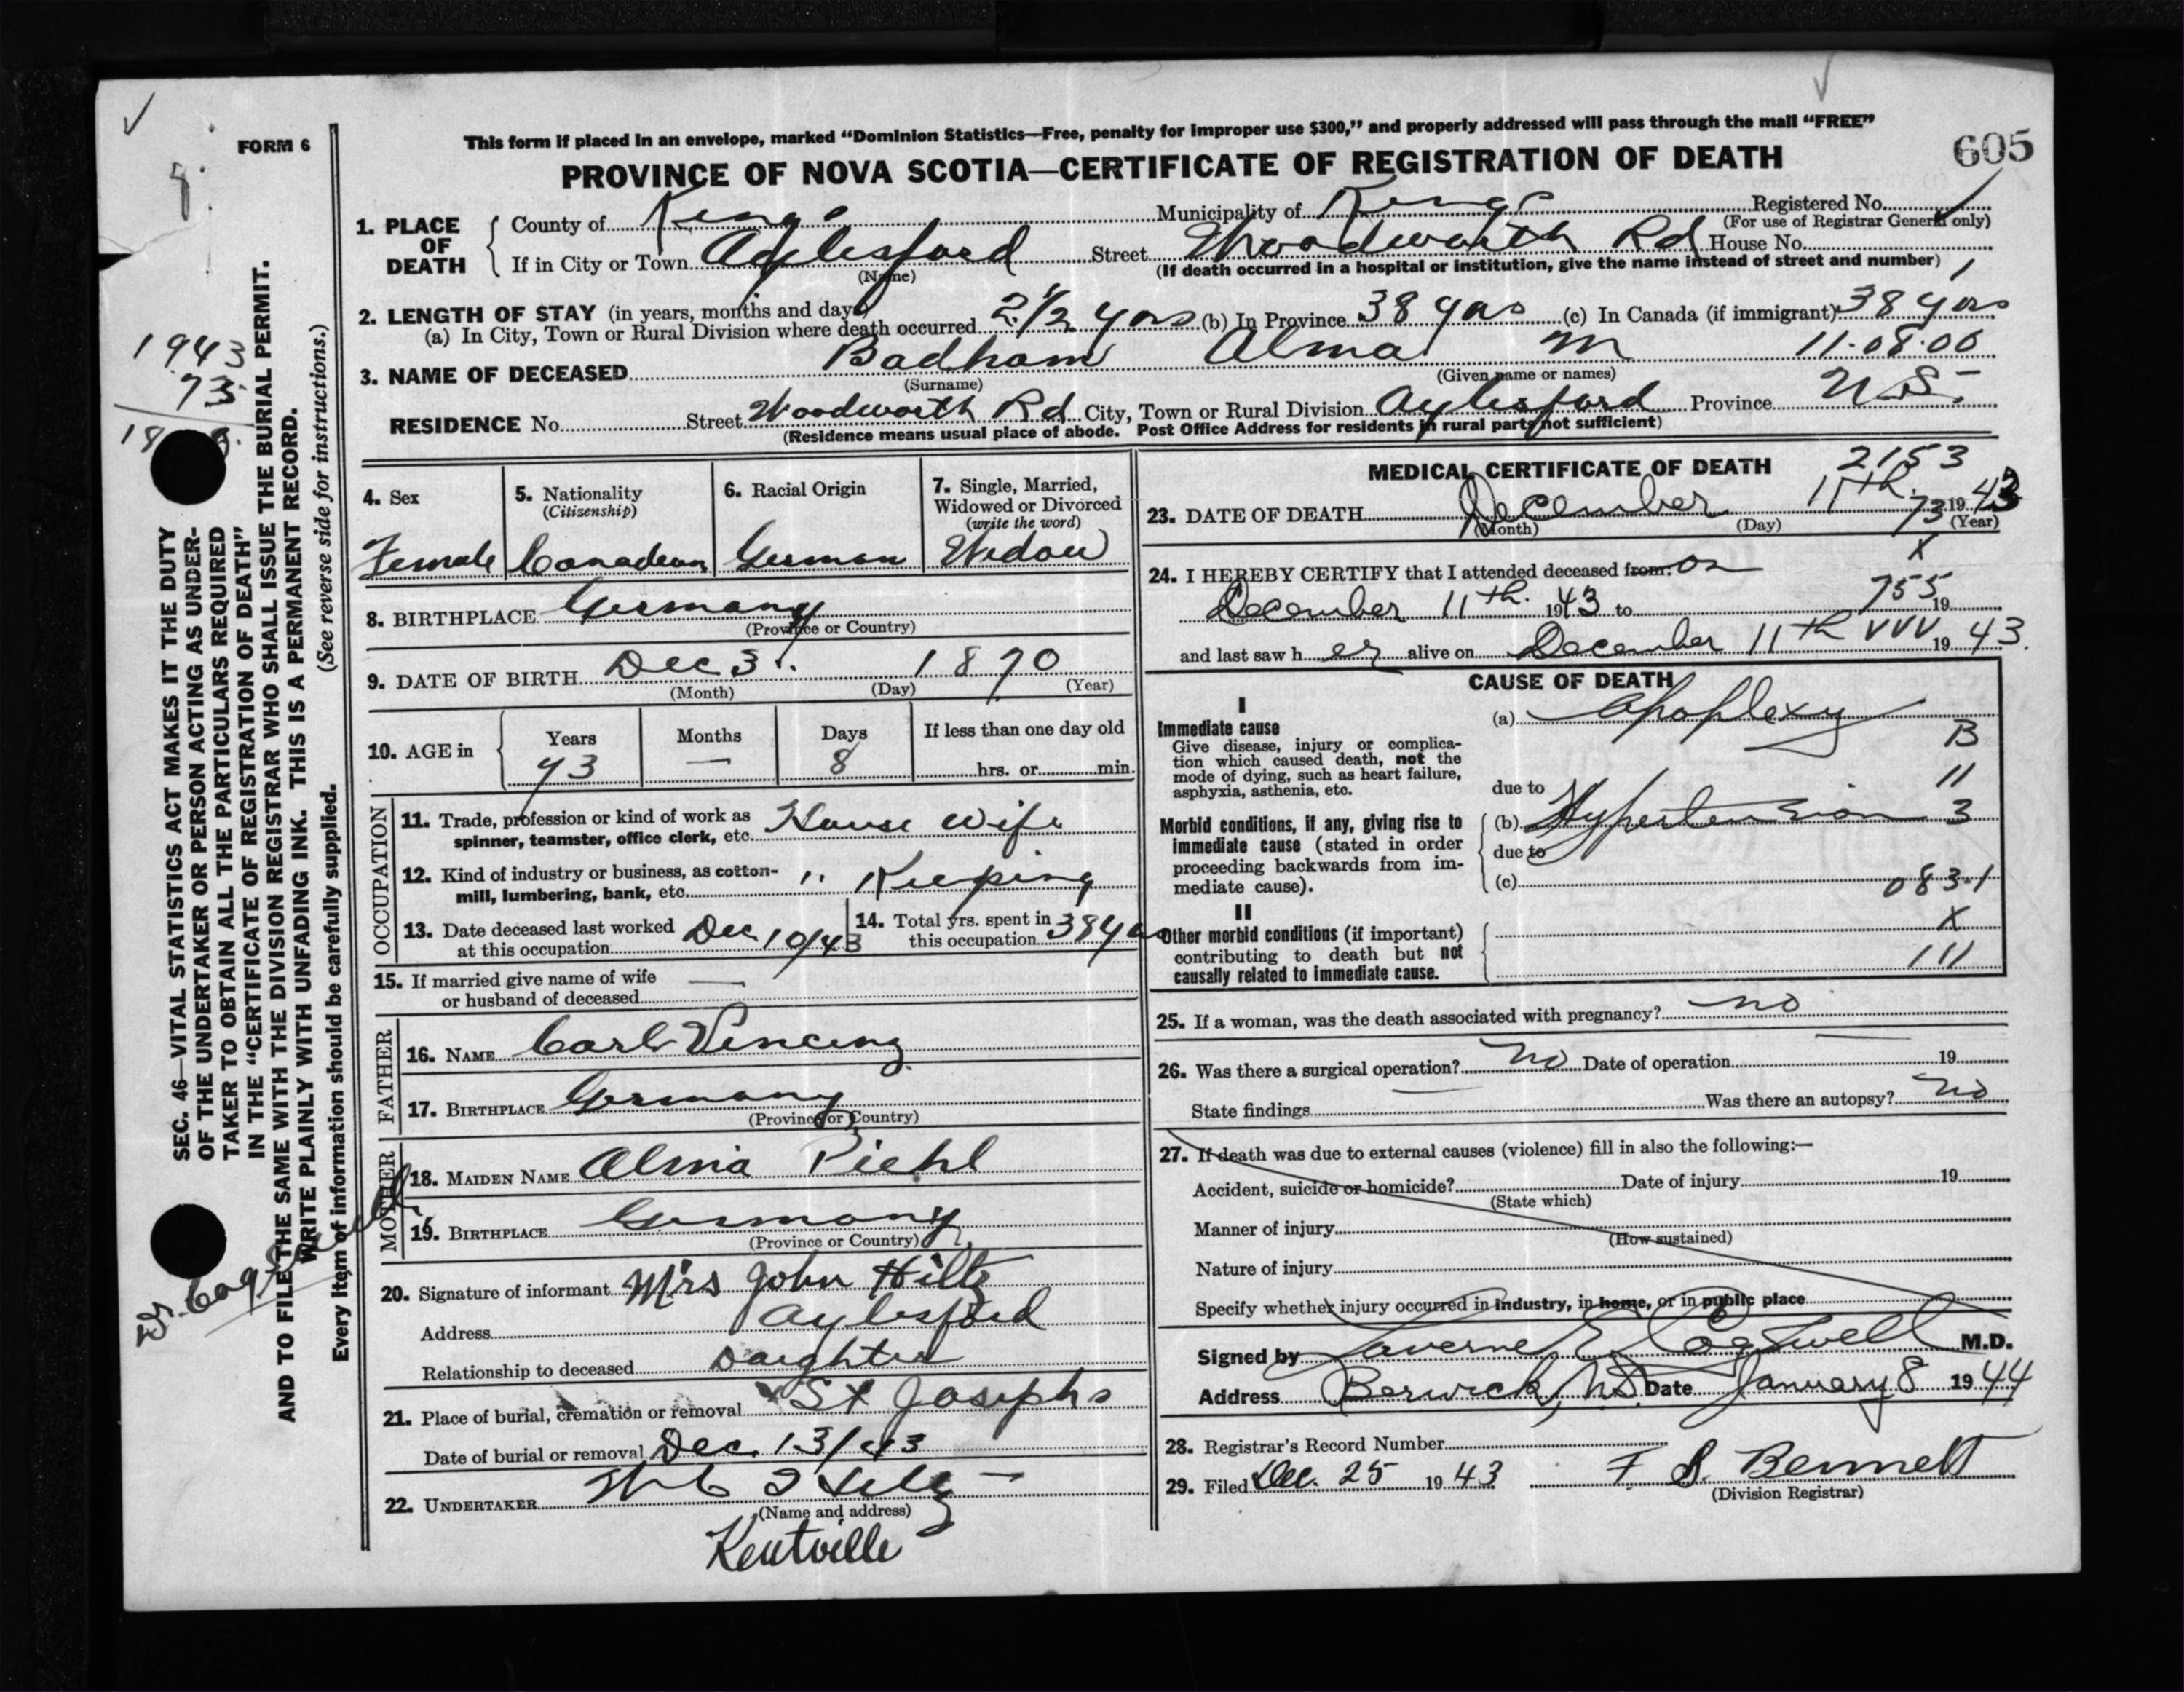 FORM 6
This form if placed in an envelope, marked “Dominion Statistics—Free, penalty for improper use $300,” and properly addressed will pass through the mail “FREE”
605
PROVINCE OF NOVA SCOTIA—CERTIFICATE OF REGISTRATION OF DEATH
1. PLACE OF DEATH
County of Kings Municipality of Kings Registered No.
(For use of Registrar General only)
If in City or Town Aylesford Street Woodworth Rd House No.
(Name) (If death occurred in a hospital or institution, give the name instead of street and number)
2. LENGTH OF STAY (in years, months and days)
(a) In City, Town or Rural Division where death occurred 2 1/2 yrs (b) In Province 38 yrs (c) In Canada (if immigrant) 38 yrs
3. NAME OF DECEASED Badham Alma M 11.08.06
(Surname) (Given name or names)
RESIDENCE No. Street Woodworth Rd City, Town or Rural Division Aylesford Province N.S.
(Residence means usual place of abode. Post Office Address for residents in rural parts not sufficient)
4. Sex
Female
5. Nationality
(Citizenship)
Canadian
6. Racial Origin
German
7. Single, Married,
Widowed or Divorced
(write the word)
Widow
8. BIRTHPLACE Germany
(Province or Country)
9. DATE OF BIRTH Dec 3. 1870
(Month) (Day) (Year)
10. AGE in
Years Months Days If less than one day old
73 — 8 hrs. or min.
OCCUPATION
11. Trade, profession or kind of work as
spinner, teamster, office clerk, etc. House wife
12. Kind of industry or business, as cotton-
mill, lumbering, bank, etc. " Keeping
13. Date deceased last worked
at this occupation Dec 10/43
14. Total yrs. spent in
this occupation 38 yrs
15. If married give name of wife
or husband of deceased —
FATHER
16. NAME Carl Vencing
17. BIRTHPLACE Germany
(Province or Country)
MOTHER
18. MAIDEN NAME Alma Piehl
19. BIRTHPLACE Germany
(Province or Country)
20. Signature of informant Mrs John Hiltz
Address Aylesford
Relationship to deceased Daughter
21. Place of burial, cremation or removal St Josephs
Date of burial or removal Dec. 13/43
22. UNDERTAKER
(Name and address)
Kentville
MEDICAL CERTIFICATE OF DEATH 2153
23. DATE OF DEATH December 11th. 19 43
(Month) (Day) 73 (Year)
X
24. I HEREBY CERTIFY that I attended deceased from: on
December 11th. 1943 to 755 19
and last saw her alive on December 11th VVV 19 43.
CAUSE OF DEATH
I
Immediate cause
Give disease, injury or complica-
tion which caused death, not the
mode of dying, such as heart failure,
asphyxia, asthenia, etc.
(a) Apoplexy
B
11
due to
Morbid conditions, if any, giving rise to
immediate cause (stated in order
proceeding backwards from im-
mediate cause).
(b) Hypertension 3
due to
(c) 083.1
II
Other morbid conditions (if important)
contributing to death but not
causally related to immediate cause.
X
111
25. If a woman, was the death associated with pregnancy? no
26. Was there a surgical operation? no Date of operation 19
State findings — Was there an autopsy? no
27. If death was due to external causes (violence) fill in also the following:—
Accident, suicide or homicide? Date of injury 19
(State which)
Manner of injury
(How sustained)
Nature of injury
Specify whether injury occurred in industry, in home, or in public place
Signed by Laverne E Cogswell M.D.
Address Berwick, N.S. Date January 8 1944
28. Registrar's Record Number
29. Filed Dec. 25 1943 F S. Bennett
(Division Registrar)
SEC. 46—VITAL STATISTICS ACT MAKES IT THE DUTY
OF THE UNDERTAKER OR PERSON ACTING AS UNDER-
TAKER TO OBTAIN ALL THE PARTICULARS REQUIRED
IN THE “CERTIFICATE OF REGISTRATION OF DEATH”
AND TO FILE THE SAME WITH THE DIVISION REGISTRAR WHO SHALL ISSUE THE BURIAL PERMIT.
WRITE PLAINLY WITH UNFADING INK. THIS IS A PERMANENT RECORD.
(See reverse side for instructions.)
Every item of information should be carefully supplied.
1943
73
Dr. Cogswell